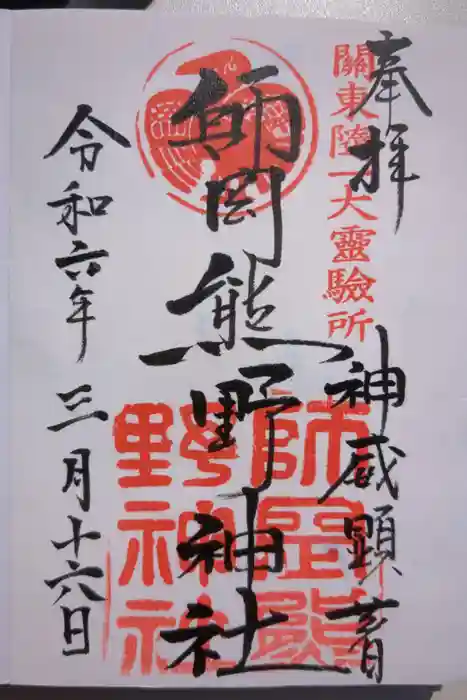 奉拝
關東隨一大靈驗所
神威顕著
師岡熊野神社
師岡熊
野神社
令和六年 三月十六日